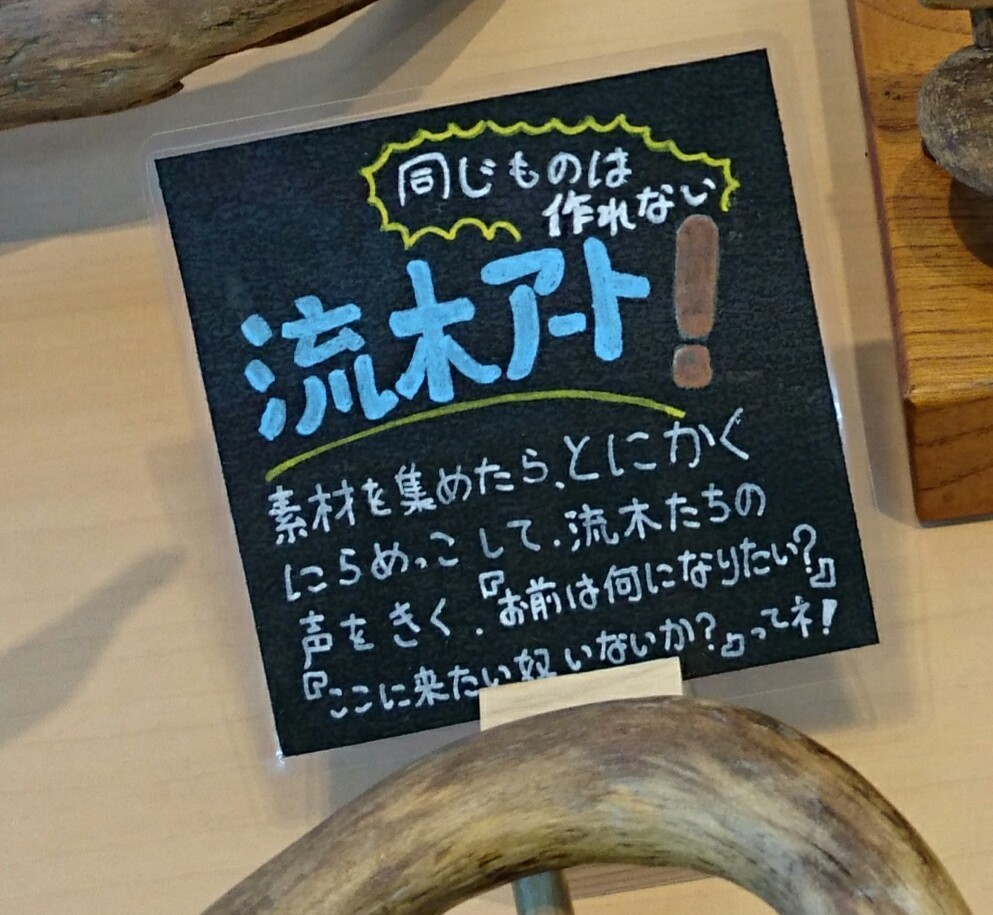 同じものは
作れない
流木アート!
素材を集めたら、とにかく
にらめっこして.流木たちの
声をきく.『お前は何になりたい?』
『ここに来たい奴いないか?』ってネ!